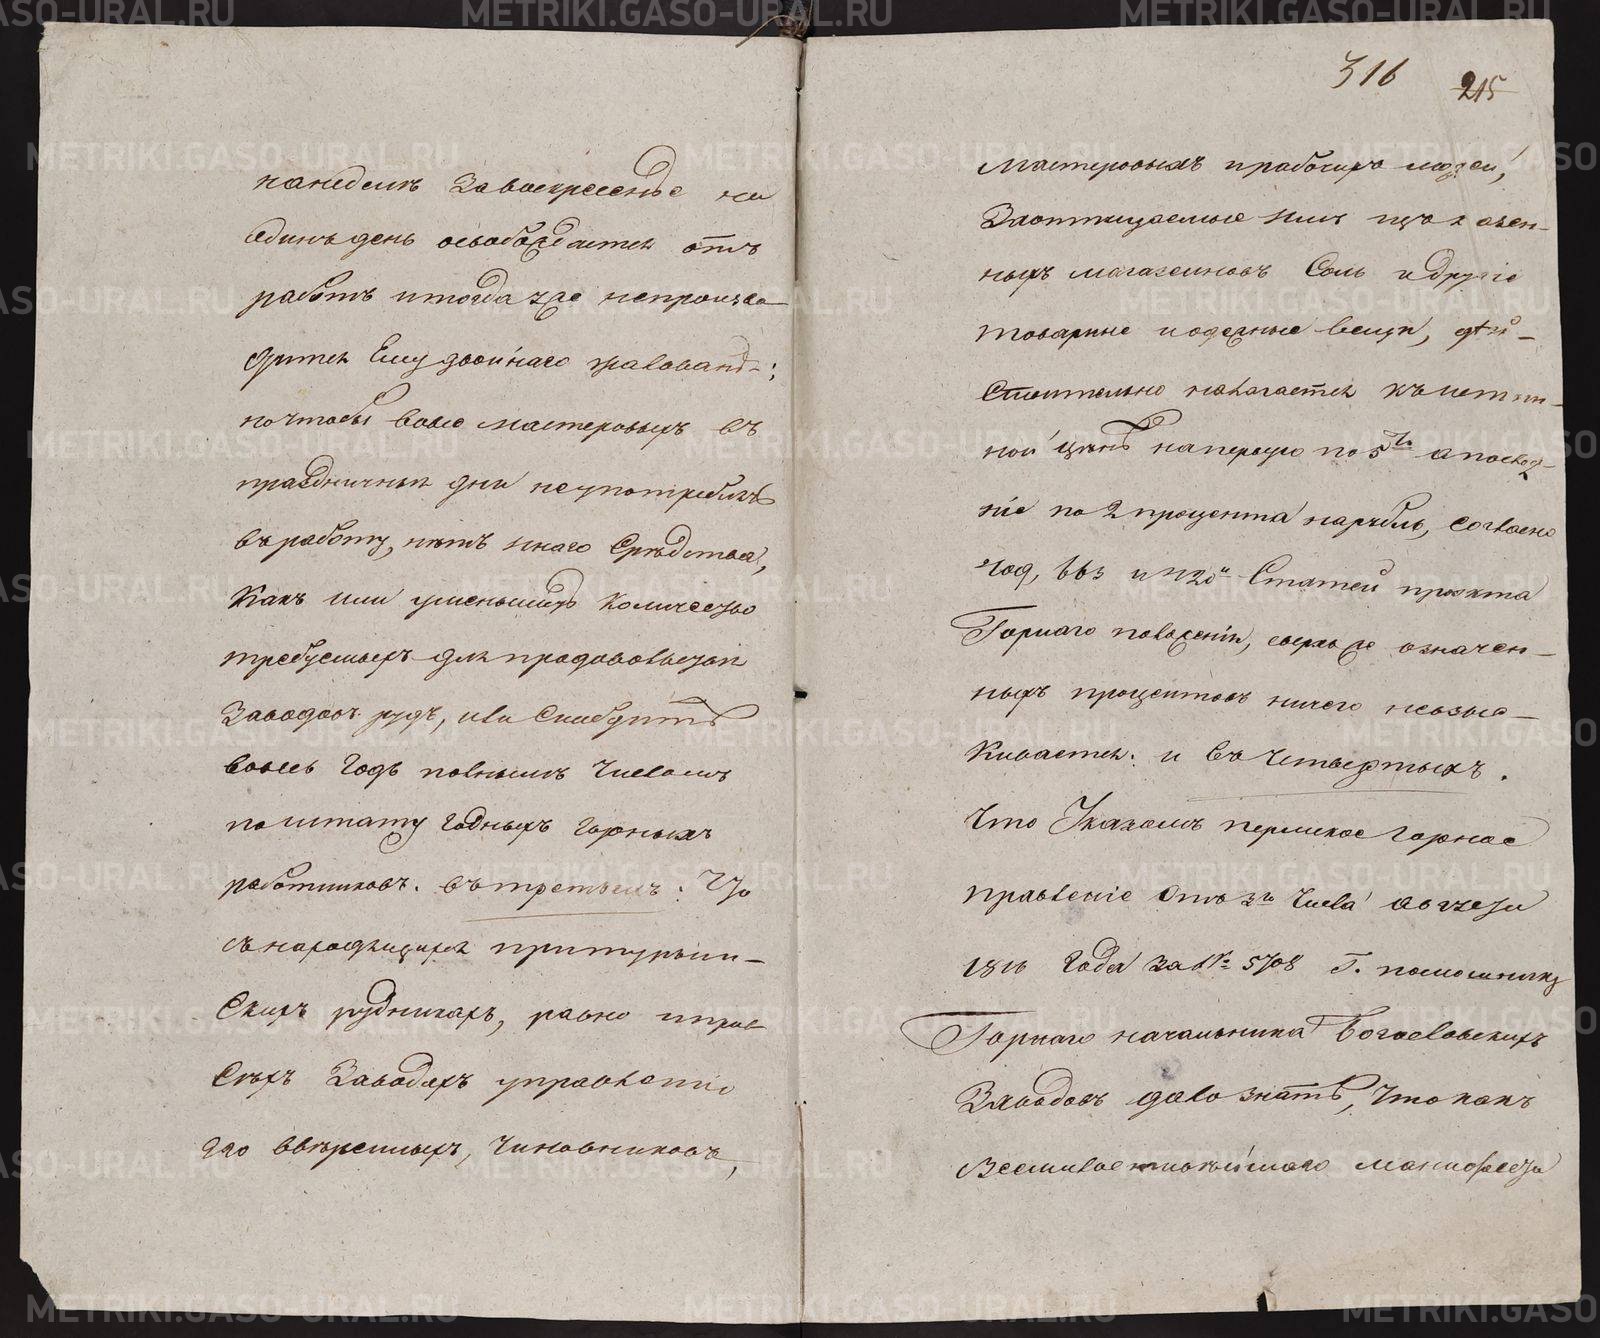 на неделѣ за воскресенье на
единъ день освобождается отъ
работъ и тогда уже непроизво-
дится Ему двойнаго жалованья;
но чтобы вовсе мастеровыхъ въ
праздничныя дни неупотреблять
въ работу, нѣтъ инаго средства,
какъ или уменьшить количество
требуемыхъ для продовольствія
Заводовъ рудъ, или снабдить
вовесь годъ полнымъ числомъ
по штату годныхъ горныхъ
работниковъ. въ третьихъ: Что
съ находящихся при турьин-
скихъ рудникахъ, равно и при
сихъ Заводахъ управленію
его ввѣренныхъ, чиновниковъ,
316 215
мастеровыхъ и рабочихъ людей,
За отпущаемые имъ изъ казен-
ныхъ магазейновъ Соль и другіе
товарные и одежные вещи, дѣй-
ствительно налагается къ истин-
ной цѣнѣ на первую по 5ть а послѣд-
ніе по 2 процента на рубль, согласно
663 и Статей проэкта
Горнаго положенія, сверхъ же означен-
ныхъ процентовъ ничего невзыс-
кивается. и въ четвертыхъ.
Что Указомъ пермское горное
правленіе отъ 3го числа августа
1816 года за № 5708 Г. помошнику
Горнаго начальника Богословскихъ
Заводовъ дало знать, что какъ
Всемилостивѣйшаго манифеста
METRIKI.GASO-URAL.RU